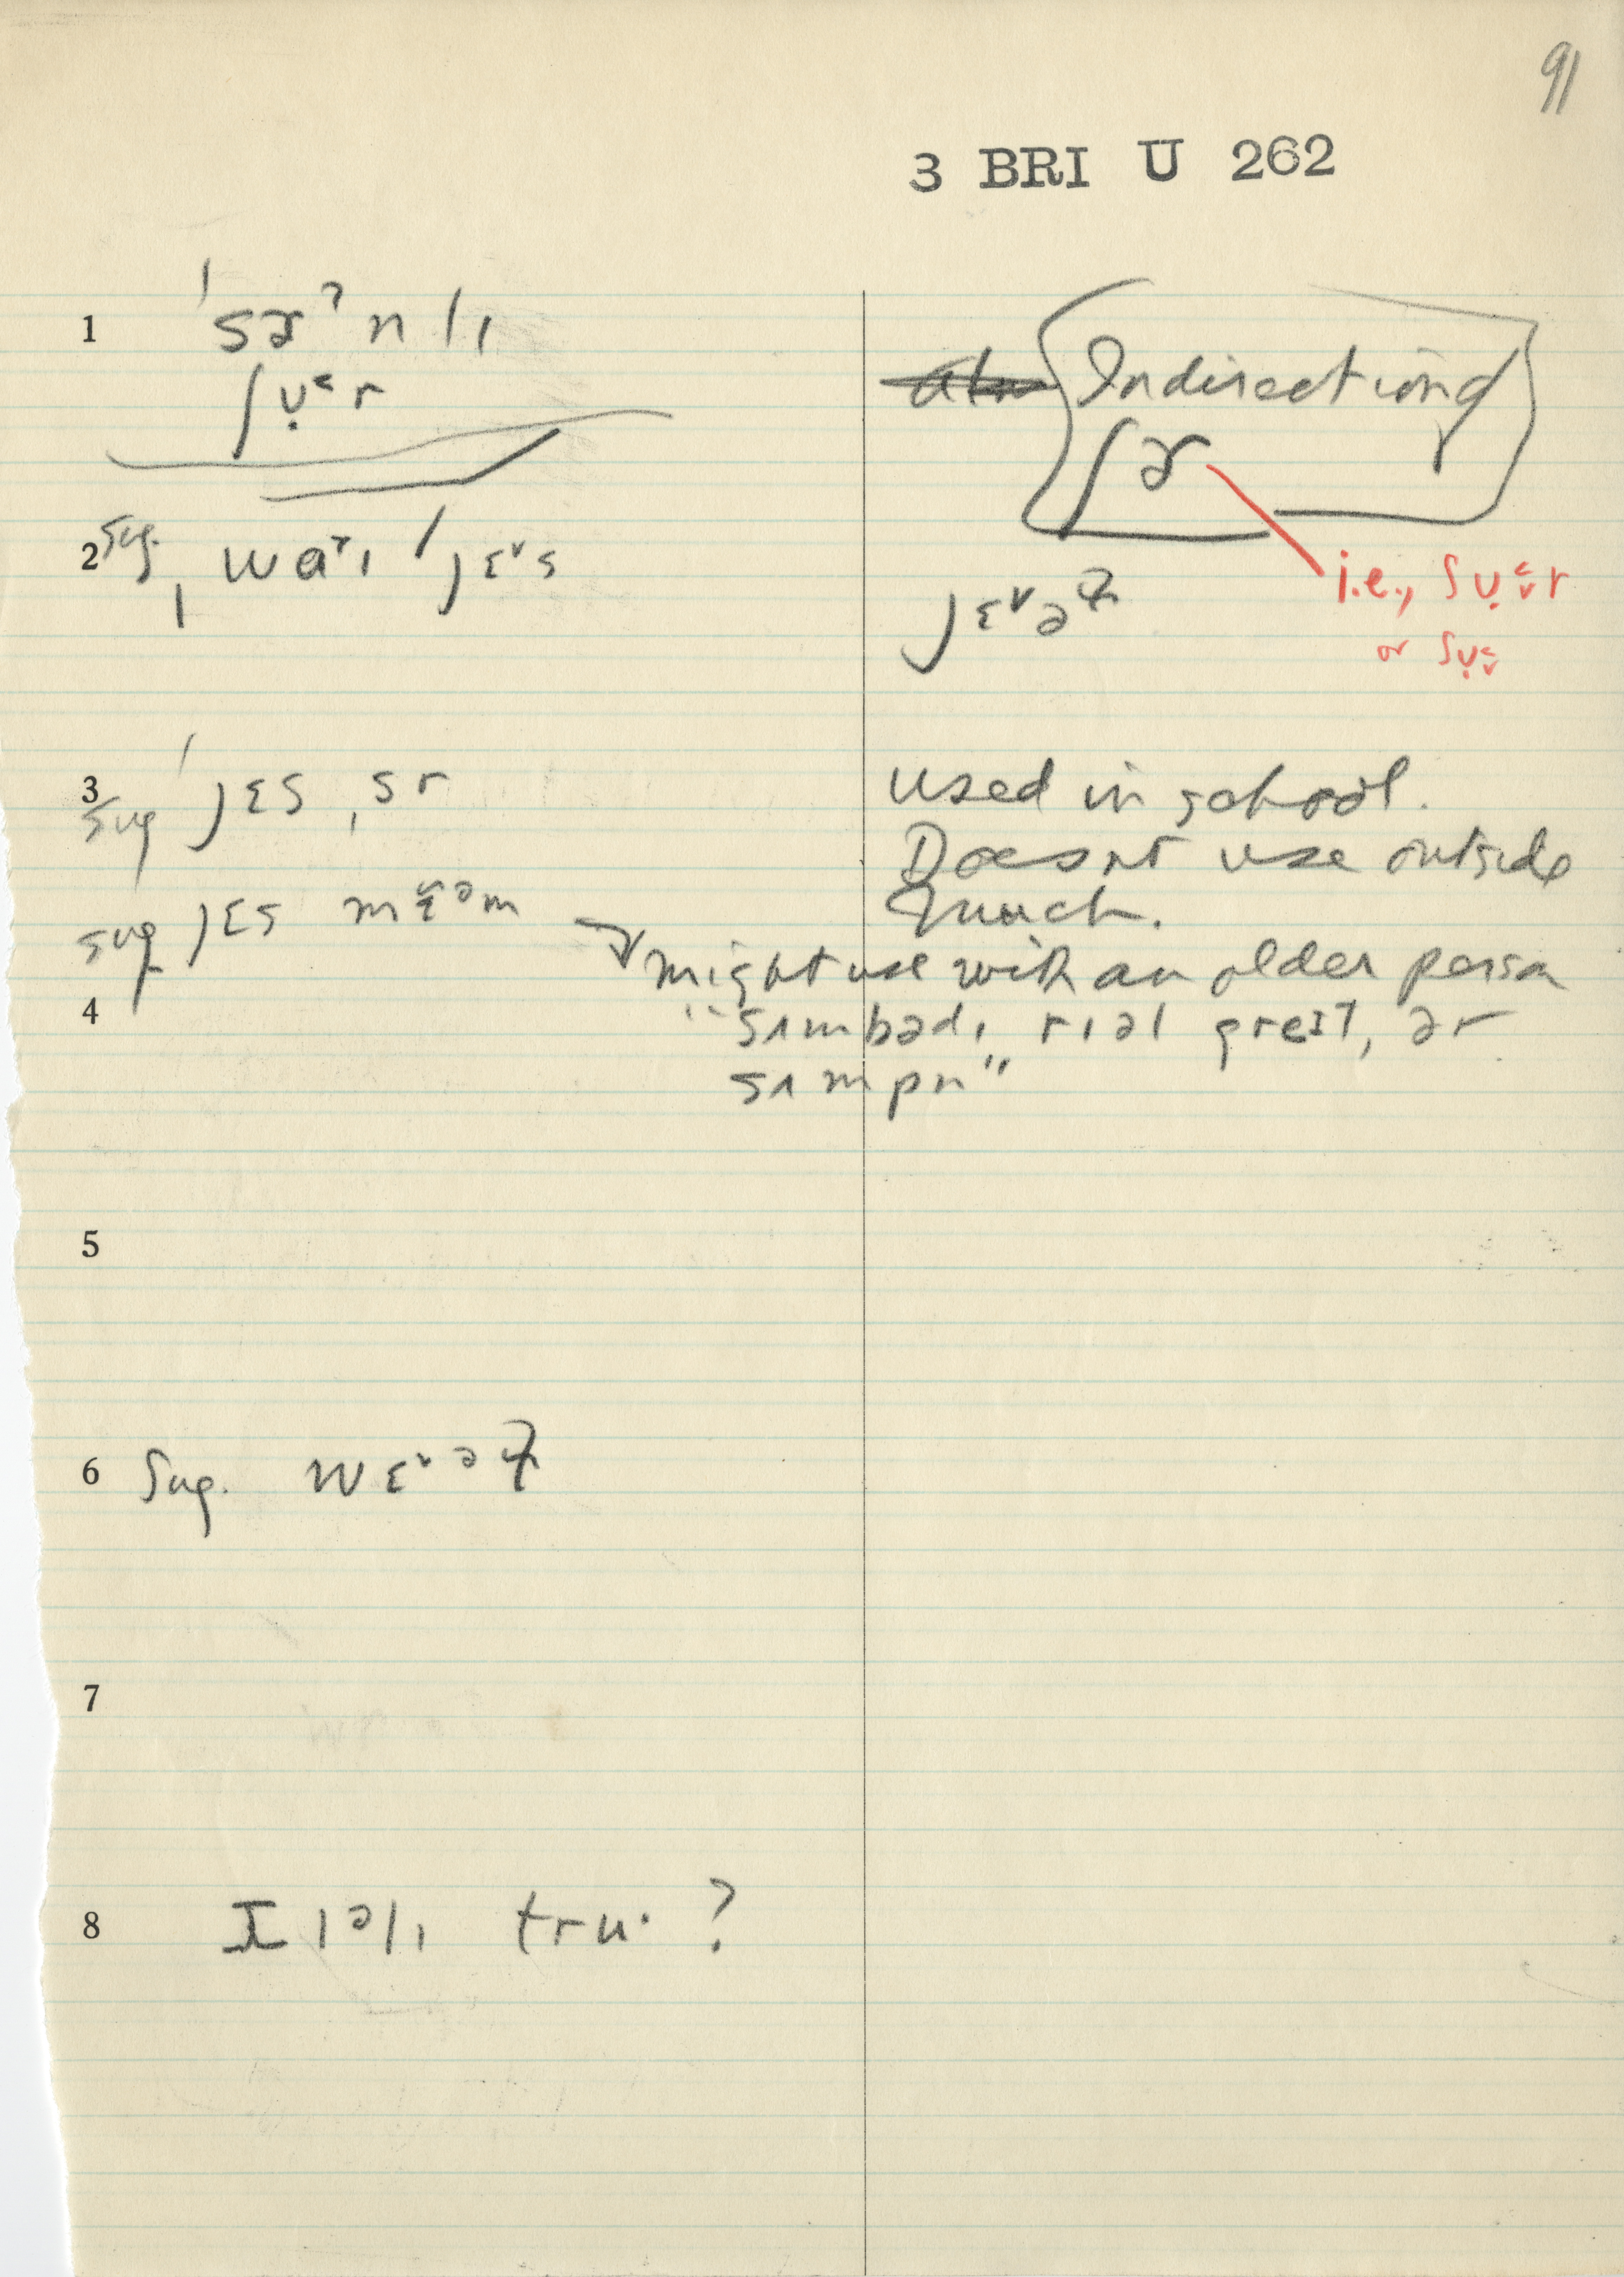 91
3 BRI U 262
1 ˈsɚˀnlɪ
ʃʊ̣˂r
Indirect
ʃɚ
i.e., ʃʊ̣˂˅r
or ʃʊ̣˂˅
2 Sug. ˌwaɪ ˈjɛ˅s
jɛ˅ə
3 sug ˈjɛs ˌsr
used in school.
Doesnt use outside
much.
sug jɛs mɛ̃əm
might use with an older person
"sʌmbadɪ rɪəl greɪt, ər
sʌmpn"
4
5
6 Sug. wɛ˅ə
7
8 ɪləlɪ tru· ?